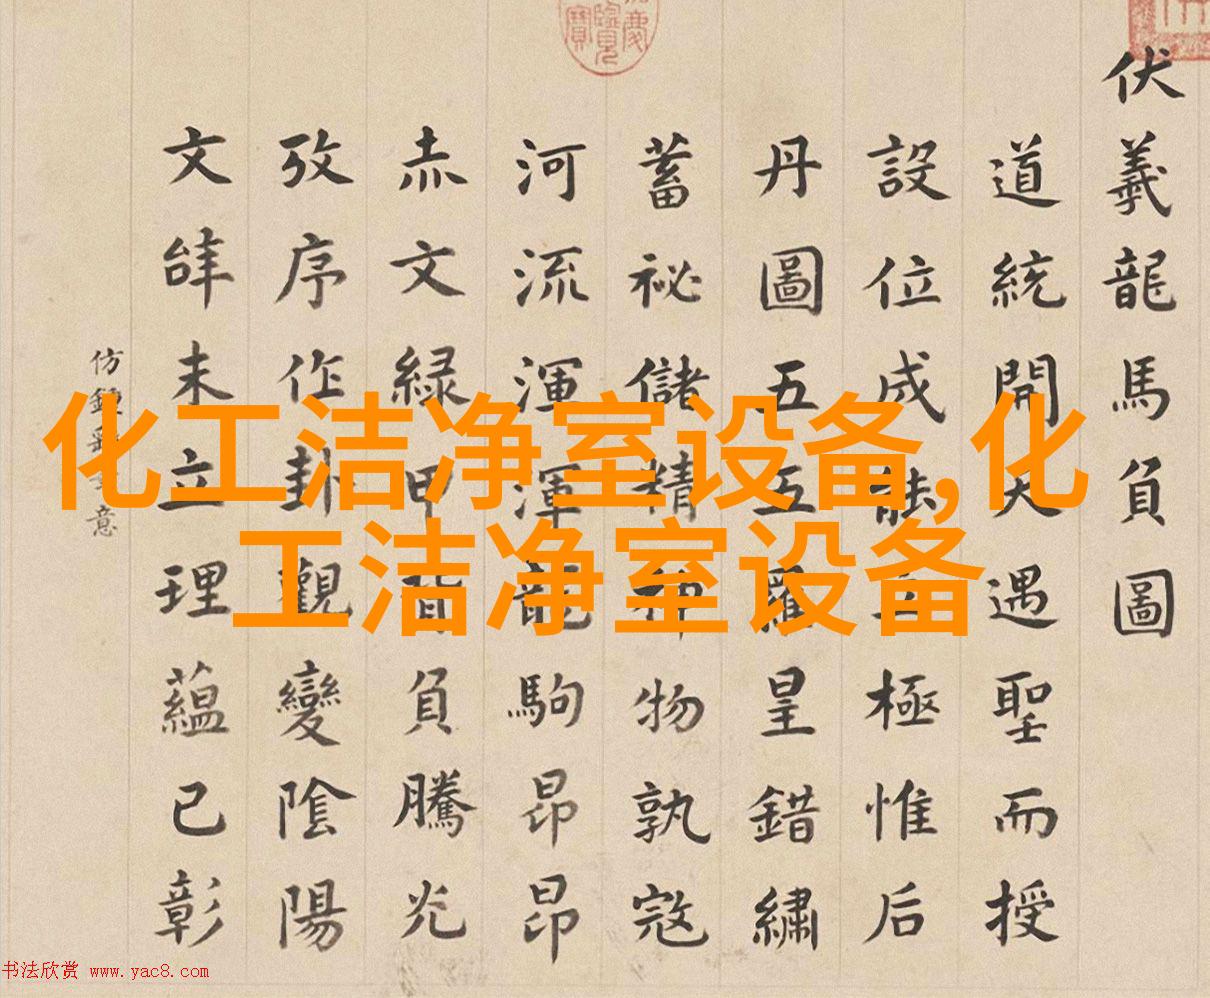 伏羲龍馬負圖
道統開天遇聖而授
設位成能立極惟后
丹圖五互羅皇錯繡
蓄祕儲精神物孰寇
河流渾渾龍駒昂昂
赤文緑甲背負騰光
攷序作卦觀變陰陽
文未立理蘊已彰
仿鍾意
化工洁净室设备,化
工洁净室设备
书法欣赏 www.yac8.com